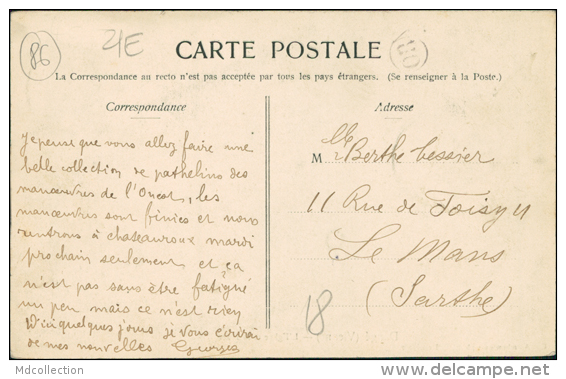 86
21E
CARTE POSTALE
OR
La Correspondance au recto n'est pas acceptée par tous les pays étrangers. (Se renseigner à la Poste.)
Correspondance
Je pense que vous allez faire une
belle collection de pathelino des
manœuvres de l'Ouest, les
manœuvres sont finies et nous
rentrons à chateauroux mardi
prochain seulement et ça
n'est pas sans être fatigué
un peu mais ce n'est rien
D'ici quelques jours je vous écrirai
de mes nouvelles Georges
Adresse
Mlle Berthe Lessier
11 Rue de Foisy 11
Le Mans
(Sarthe)
18
Mdcollection
http://www.delcampe.net